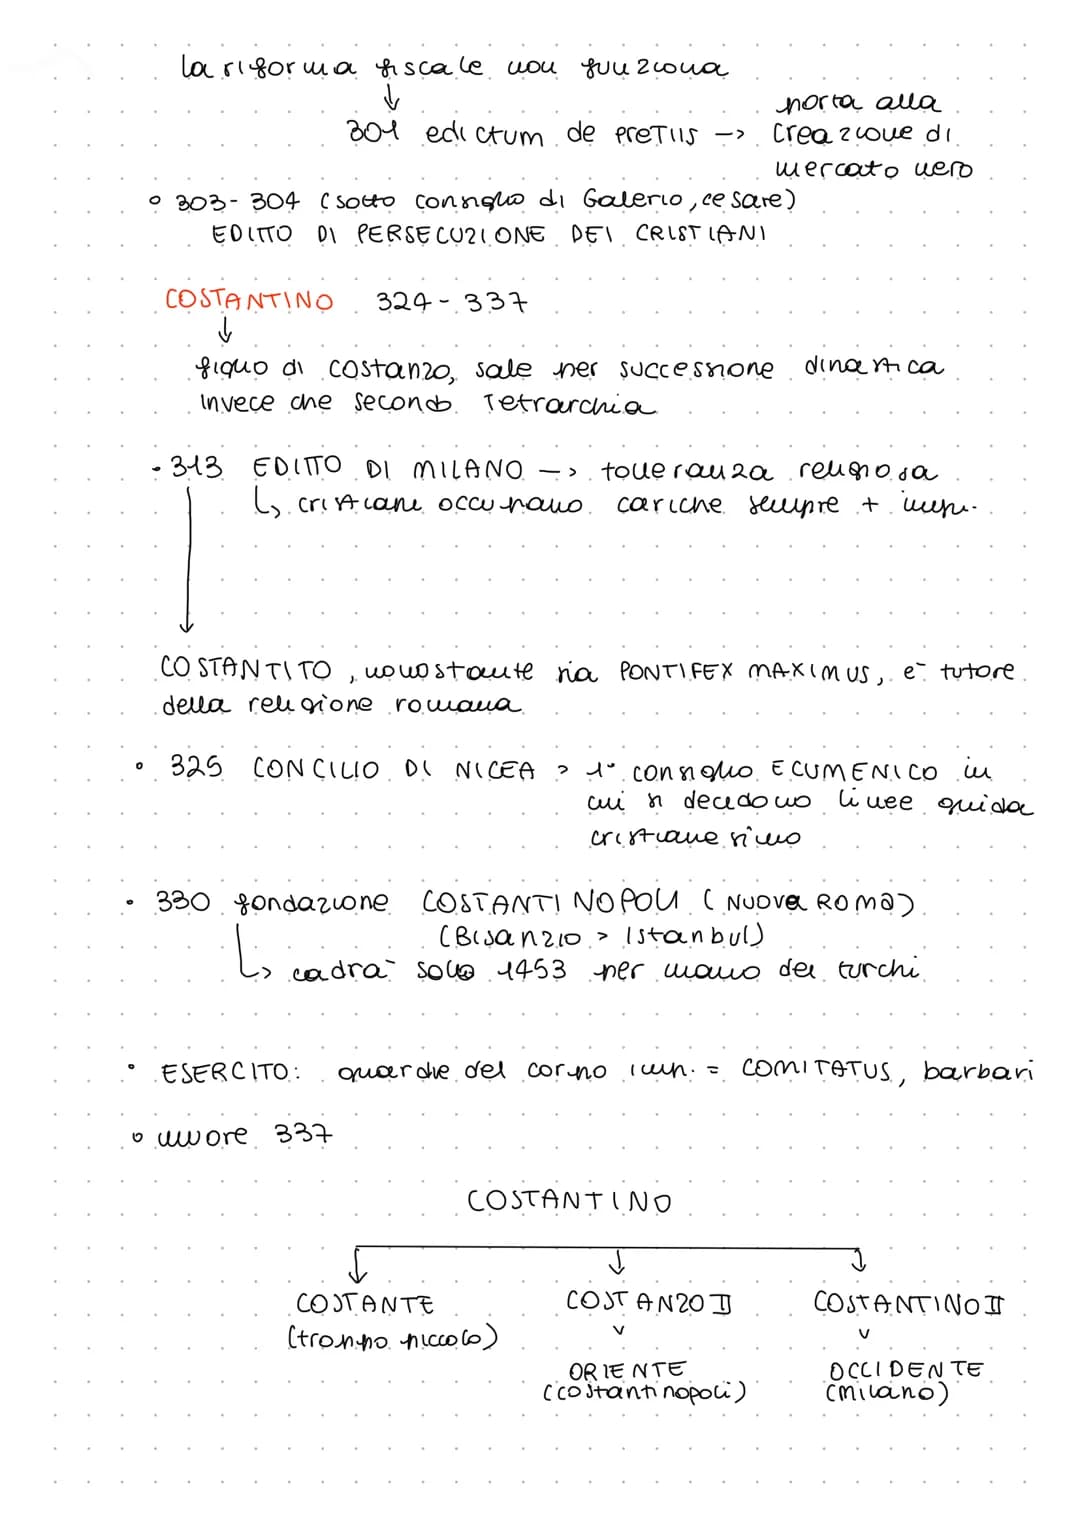 la riforma fiscale non funziona
↓
301 edictum de PRETIIS -> porta alla
creazione di
mercato nero
303-304 (sotto consiglio di Galerio, cesare)
EDITTO DI PERSECUZIONE DEI CRISTIANI
COSTANTINO 324-337
↓
figlio di costanzo, sale per successione dinastica
invece che secondo Tetrarchia
- 313 EDITTO DI MILANO -> tolleranza religiosa
↳ cristiani occupano cariche sempre + imp.
COSTANTITO, nonostante sia PONTIFEX MAXIMUS, è tutore
della religione romana
325 CONCILIO DI NICEA > 1° consiglio ECUMENICO in
cui si decidono linee guida
cristianesimo
330 fondazione COSTANTINOPOLI (NUOVA ROMA)
(Bisanzio > Istanbul)
↳ cadrà solo 1453 per mano dei turchi
ESERCITO: guardie del corpo imp. = COMITATUS, barbari
muore 337
COSTANTINO
COSTANTE COSTANZO II COSTANTINO II
(troppo piccolo) v v
ORIENTE OCCIDENTE
(costantinopoli) (milano)